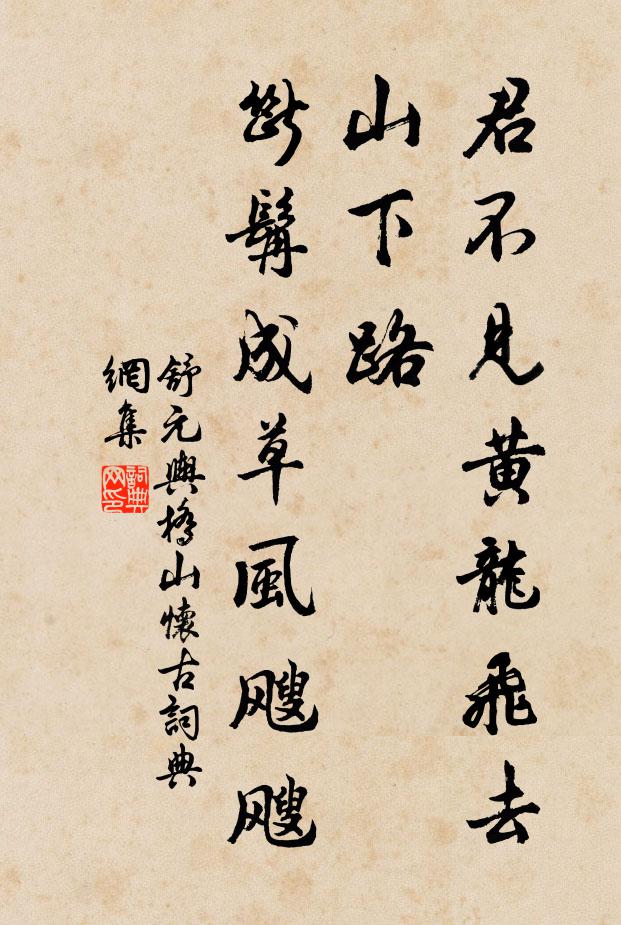 君不見黃龍飛去
山下路
斷髯成草風颼颼
舒元輿橋山懷古詞典
網集
詞典
網印